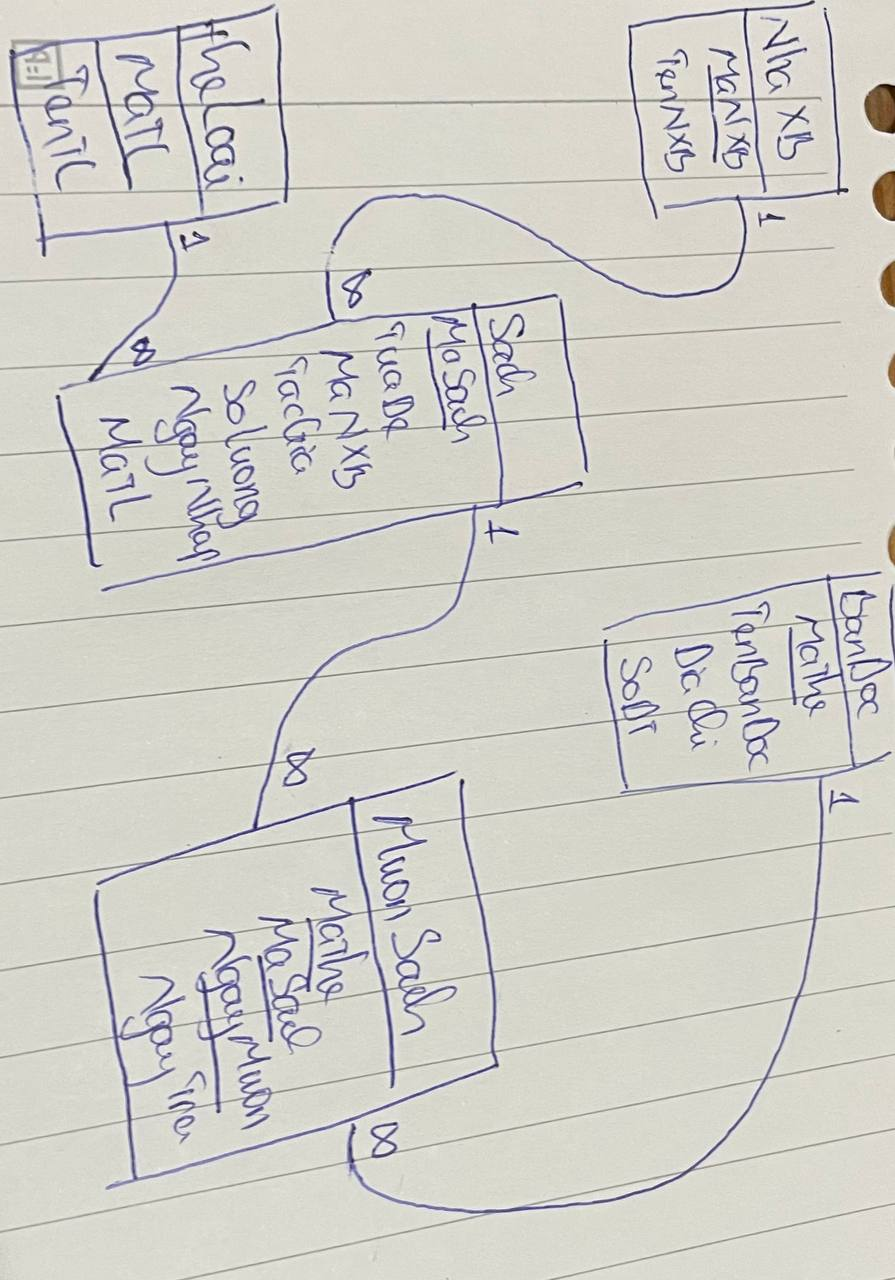 Nha XB
MaNXB
TenNXB
1
TheLoai
MaTL
TenTL
1
∞
∞
Sach
MaSach
TuaDe
MaNXB
TacGia
SoLuong
NgayNhap
MaTL
1
BanDoc
MaThe
TenBanDoc
Dia chi
SoDT
1
∞
Muon Sach
MaThe
MaSach
NgayMuon
NgayTra
∞